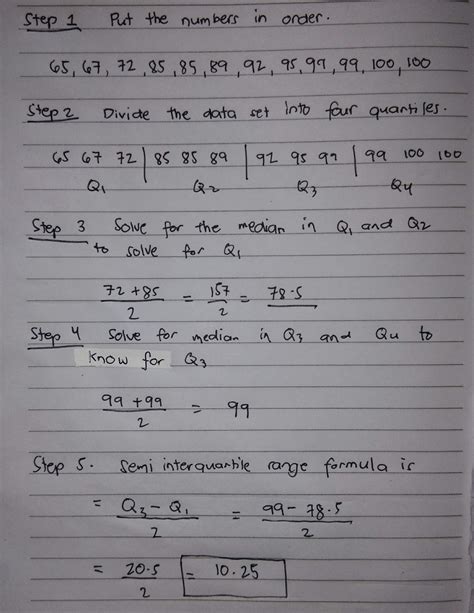 Step 1 Put the numbers in order.
65, 67, 72, 85, 85, 89, 92, 95, 99, 99, 100, 100
Step 2 Divide the data set into four quartiles.
65 67 72 | 85 85 89 | 92 95 99 | 99 100 100
Q1 Q2 Q3 Q4
Step 3 Solve for the median in Q1 and Q2
to solve for Q1
72 + 85 / 2 = 157 / 2 = 78.5
Step 4 Solve for median in Q3 and Q4 to
know for Q3
99 + 99 / 2 = 99
Step 5. Semi interquartile range formula is
= Q3 - Q1 / 2 = 99 - 78.5 / 2
= 20.5 / 2 = 10.25